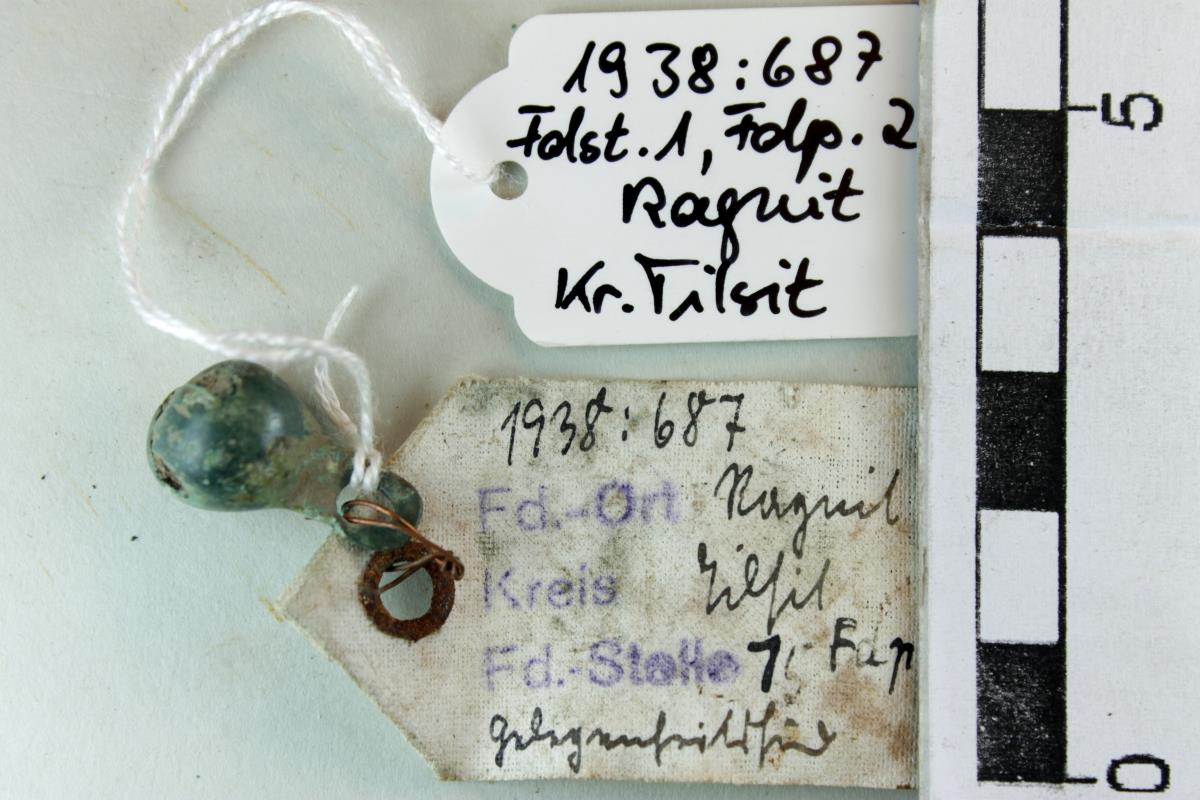 1938:687
Fdst. 1, Fdp. 2
Ragnit
Kr. Tilsit
1938:687
Fd.-Ort Ragnit
Kreis Tilsit
Fd.-Stelle 1, Fdp
Gelegenheitsfund
5
0